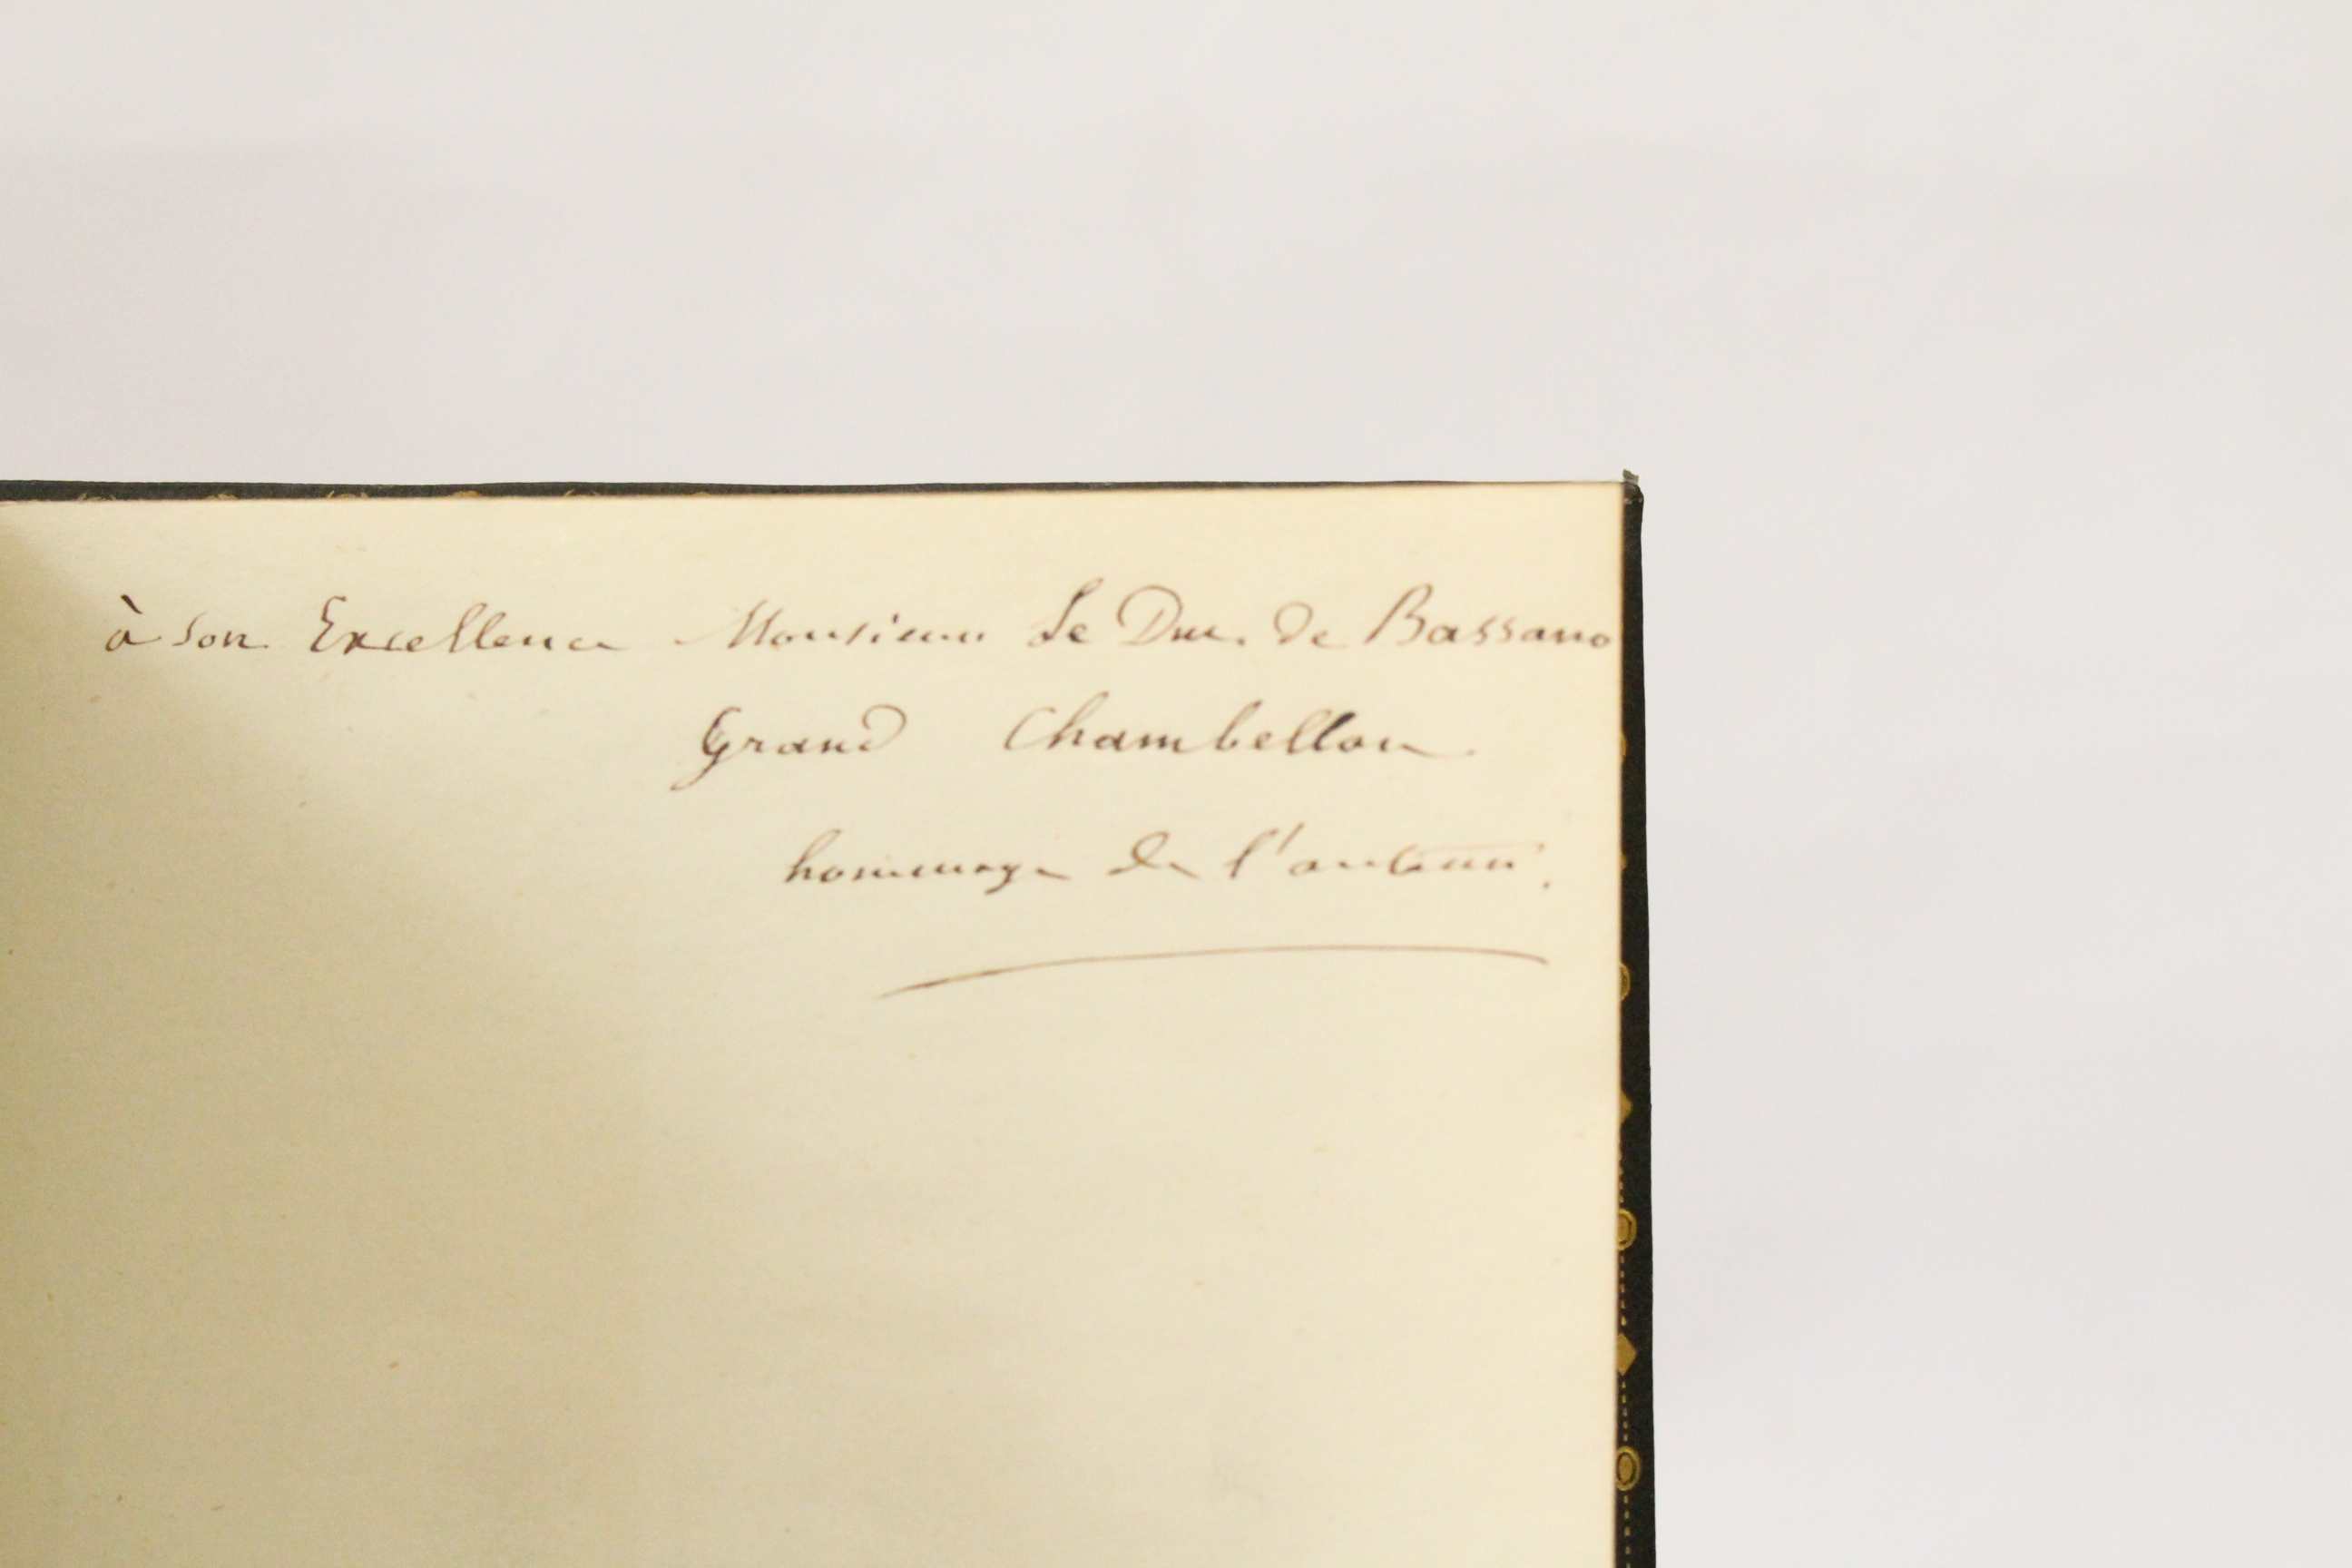 à Son Excellence Monsieur Le Duc de Bassano
Grand Chambellan
hommage de l'auteur.